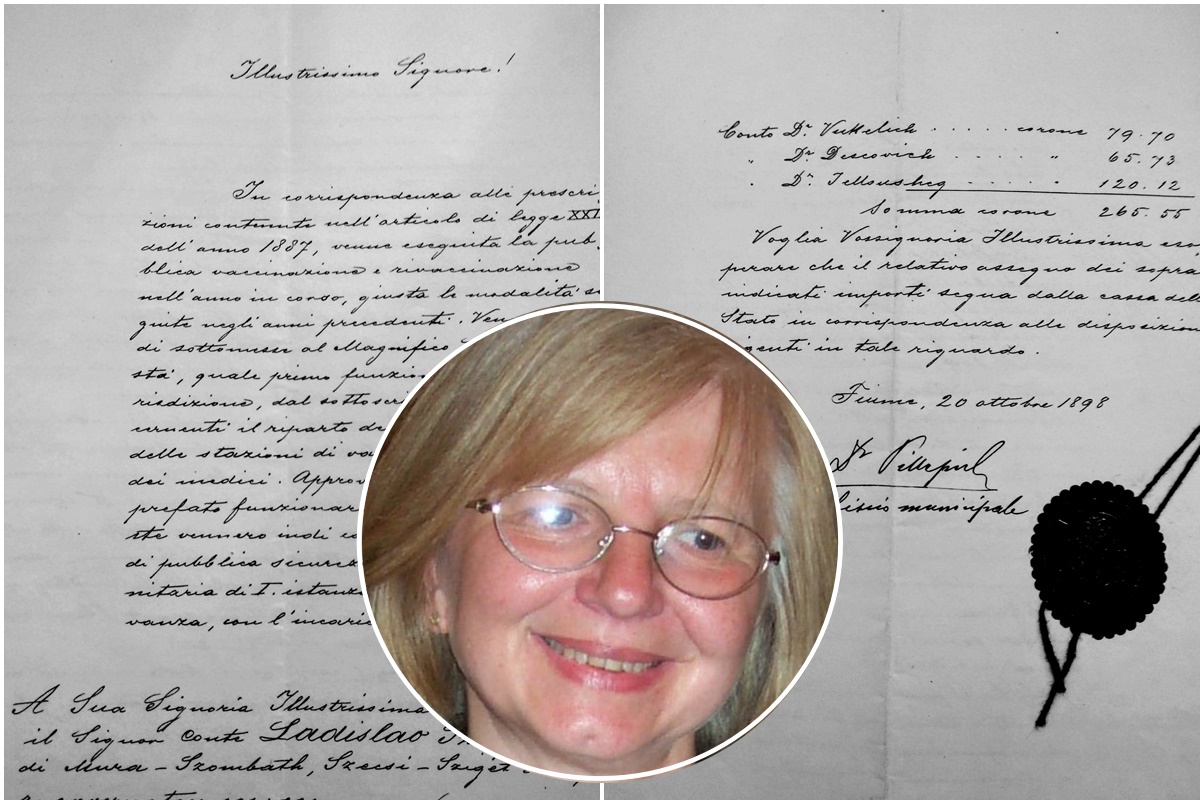 Illustrissimo Signore!
In corrispondenza alle prescri-
zioni contenute nell'articolo di legge XXI
dell'anno 1887, venne eseguita la pub-
blica vaccinazione e rivaccinazione
nell'anno in corso, giusta le modalità se
guite negli anni precedenti. Ven
di sottomesse al Magnifico
stà, quale primo funzion
risdizione, dal sottoscri
cernenti il riparto de
delle stazioni di va
dei medici. Approv
prefato funzionar
ste vennero indi
di pubblica sicurez
nitaria di I. istanz
vanza, con l'incaric
A Sua Signoria Illustrissima
il Signor Conte Ladislao
di Mura-Szombath, Szecsi-Sziget
Conto Dr. Vukelich ..... corone 79.70
" Dr. Descovich ..... " 65.73
" Dr. ..... " 120.12
Somma corone 265.55
Voglia Vossignoria Illustrissima eso
perare che il relativo assegno dei sopra
indicati importi segua dalla cassa dell
Stato in corrispondenza alle disposizion
igenti in tale riguardo.
Fiume, 20 ottobre 1898
Dr
isico municipale